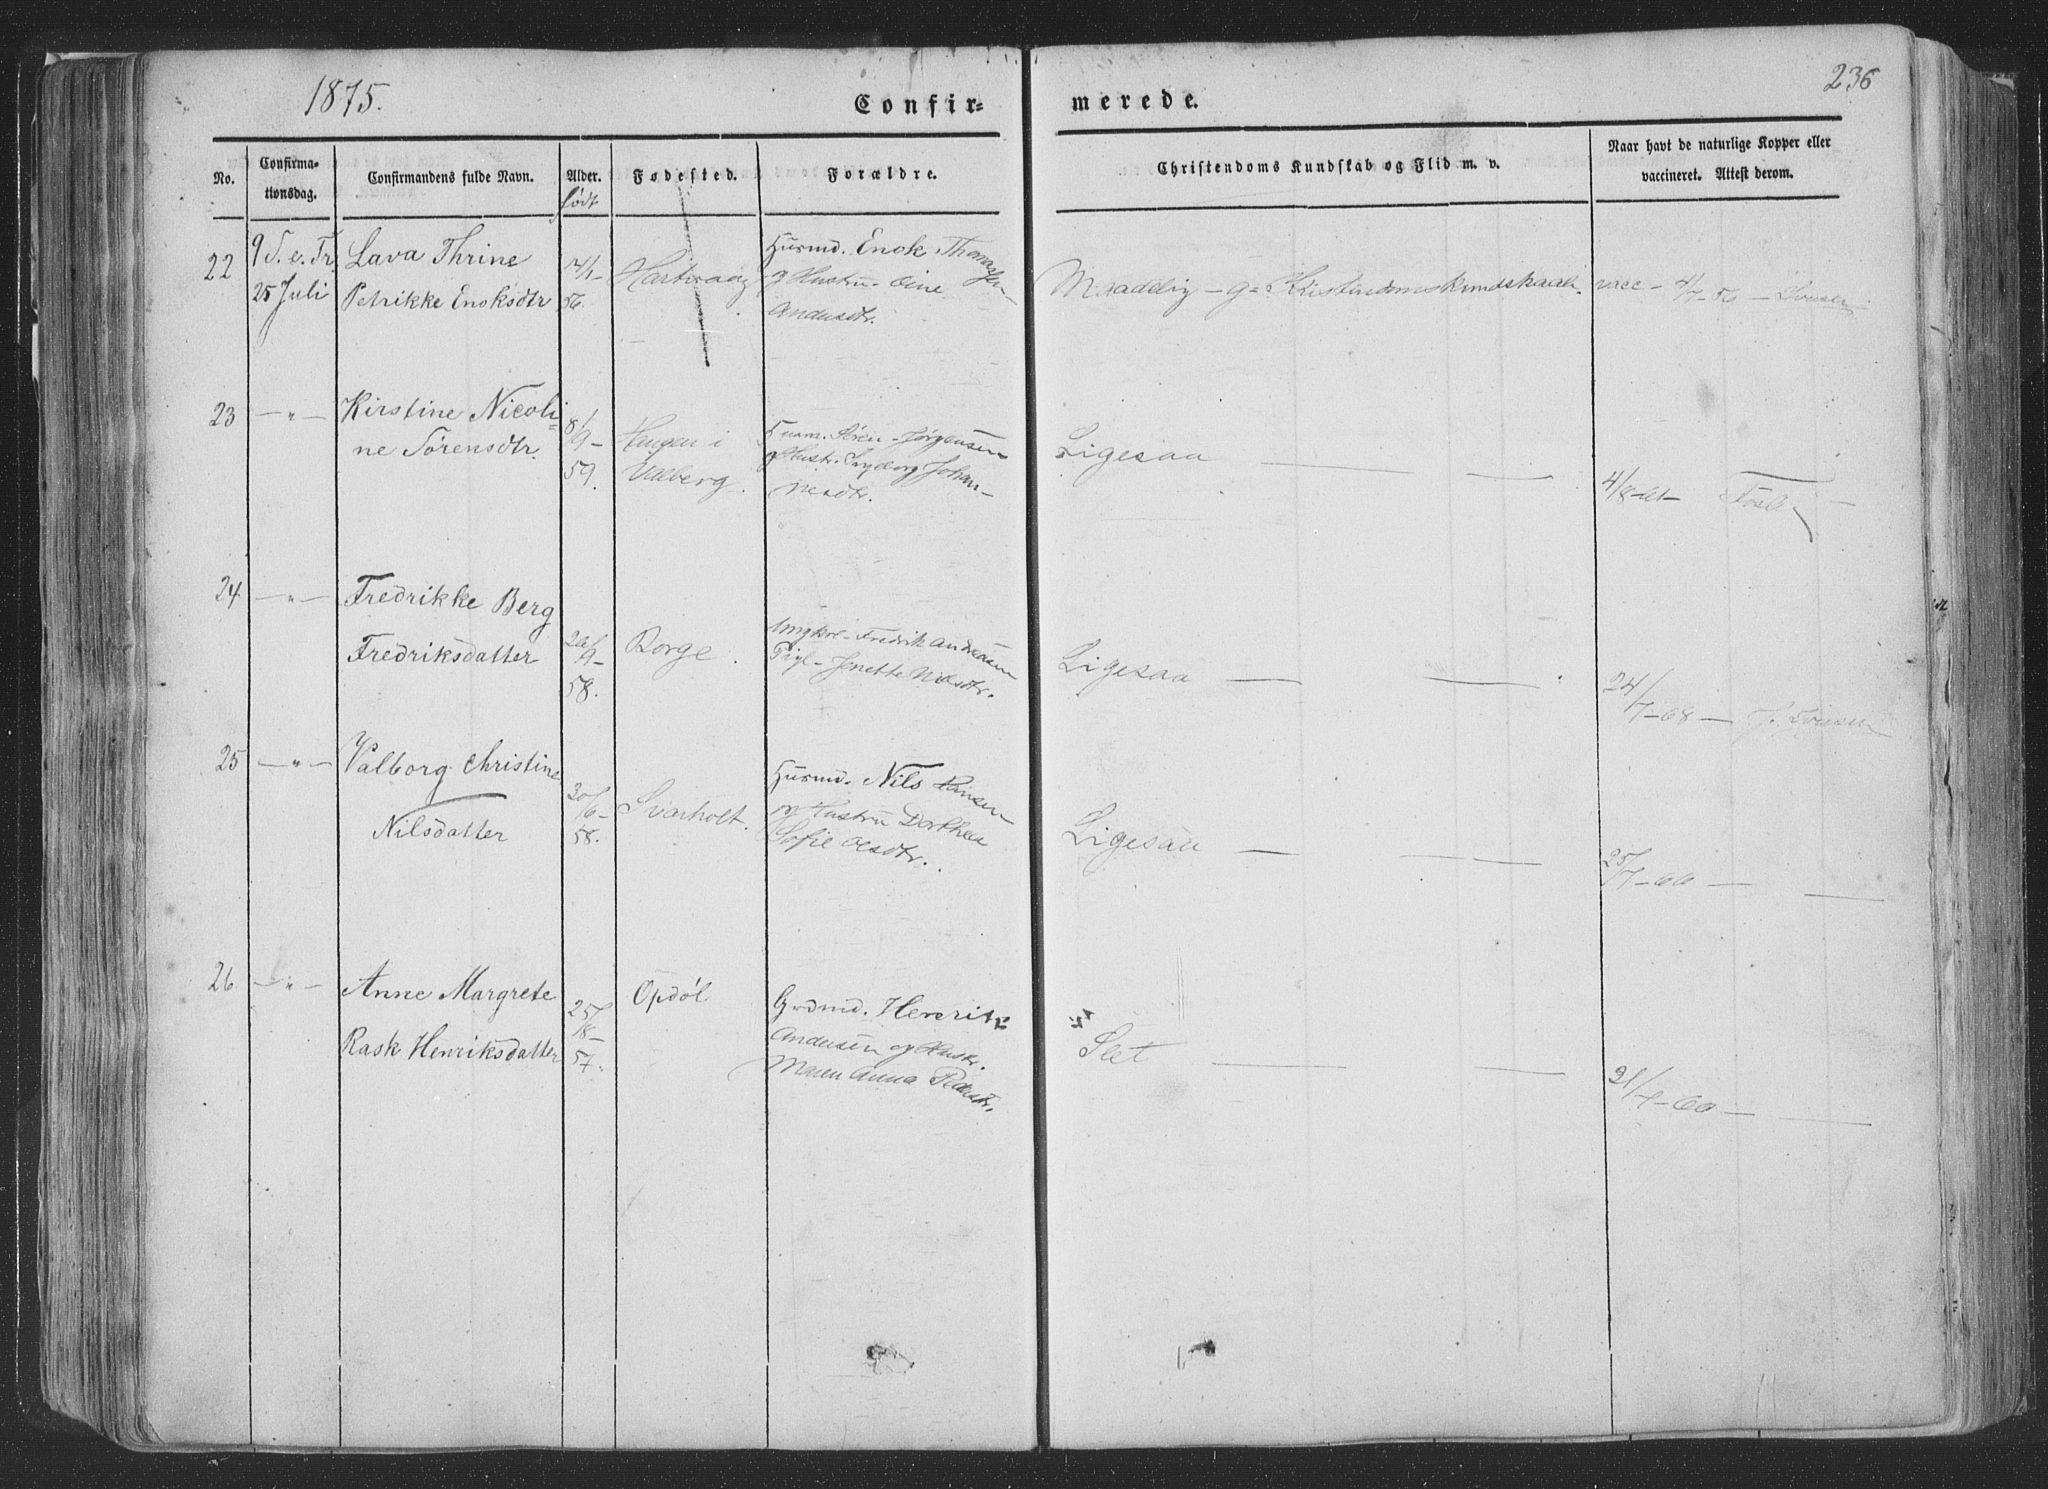 1875.
236
Confir=
merede.
No.
Confirma-
tionsdag.
Confirmandens fulde Navn.
Alder.
født
Fødested.
Forældre.
Christendoms Kundskab og Flid m. v.
Naar havt de naturlige Kopper eller
vaccineret. Attest derom.
22
9 S. e. Tr.
25 Juli
Lava Thrine
Petrikke Enoksdtr
56.
Husmd. Enok Thomassen
og Hustru
Andersdtr.
Maadelig
vacc -
23
— " —
Kirstine Nicoli
ne Sörensdtr.
8/
9 -
59.
Haugen i
Valberg.
Sören Jörgensen
Hustr. Ingeborg Johan-
nesdtr.
Ligesaa — — —
4/8-61-
24
— " —
Fredrikke Berg
Fredriksdatter
9 -
58.
Borge.
Ungkrl. Fredrik Andreasen
Pige Jenette Nilsdtr.
Ligesaa — —
24/
7-68 —
25
— " —
Valborg Christine
Nilsdatter
30/
6 -
58.
Svarholt.
Husmd. Nils Hansen
og Hustru Dorthea
Sofie Olsdtr.
Ligesaa — — —
25/
7-66 — —
26
— " —
Anne Margrete
Rask Henriksdatter
25/
8 -
57.
Opdøl
Grdmd. Henrik
Andersen og Hustr.
Maren Anna Pedersdtr.
Slet — — —
21/
-60 — —